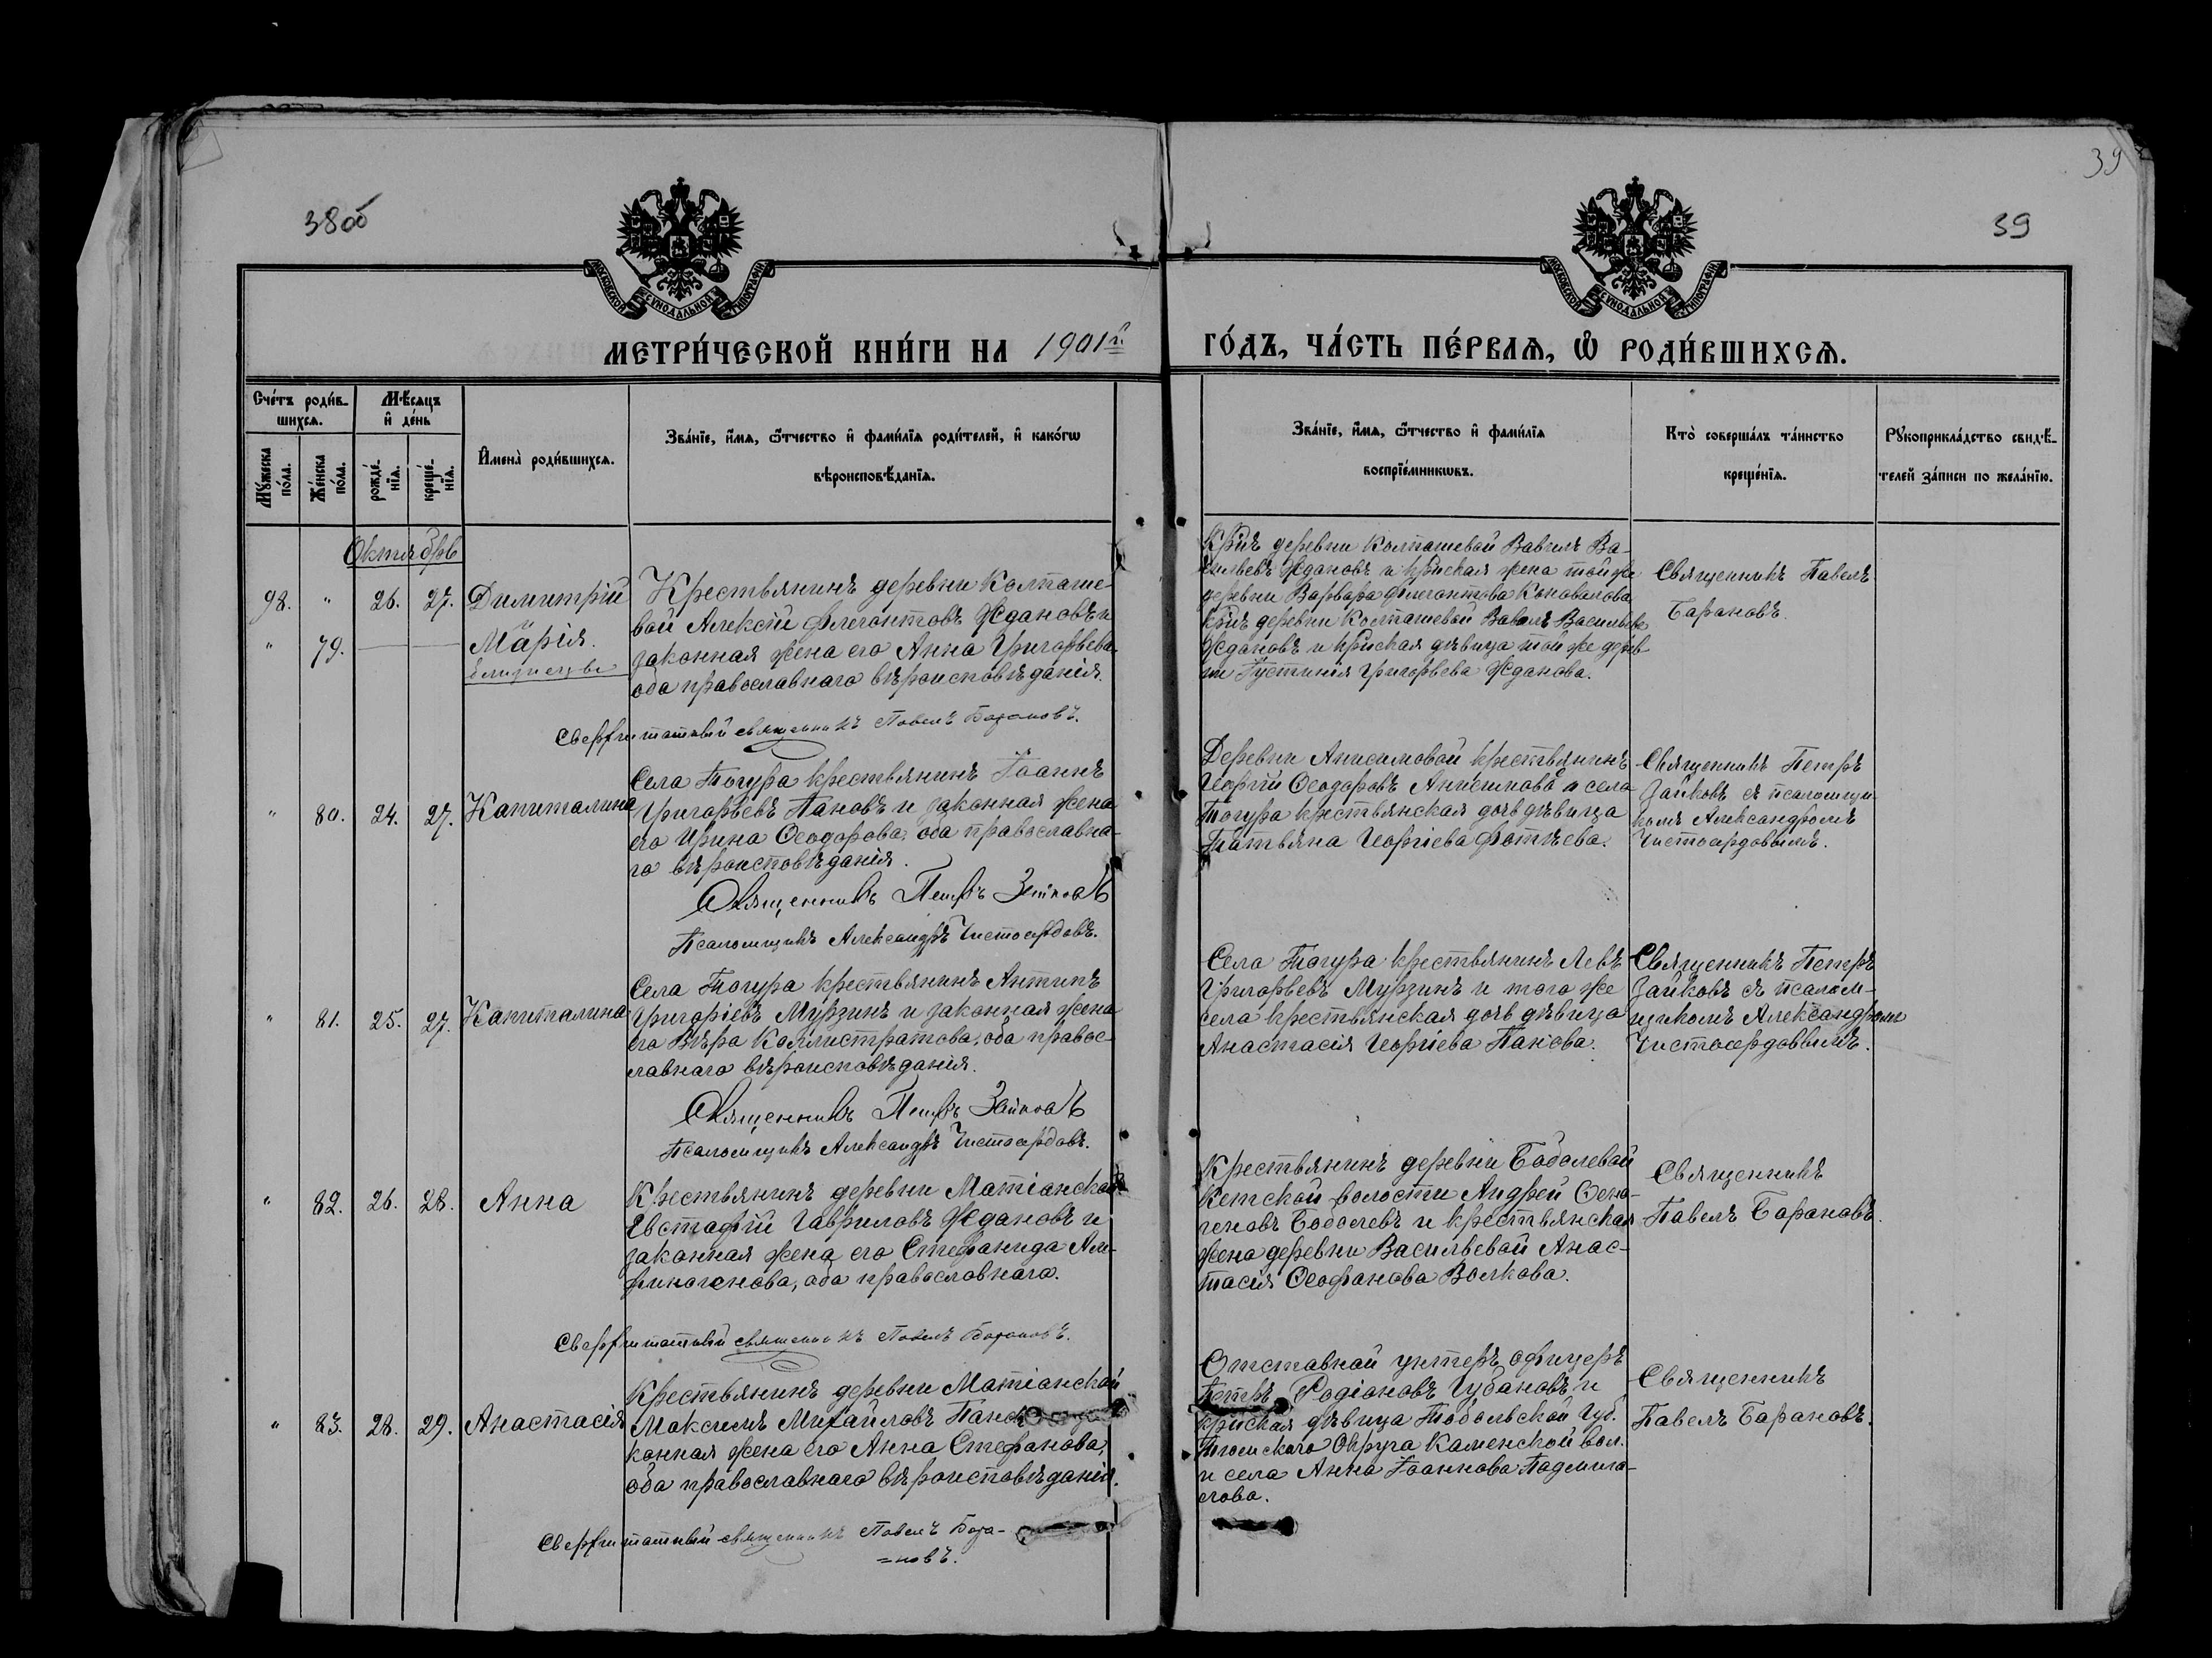 39
38об
39
МОСКОВСКОЙ СѴНОДАЛЬНОЙ ТИПОГРАФІИ
МОСКОВСКОЙ СѴНОДАЛЬНОЙ ТИПОГРАФІИ
МЕТРИ́ЧЕСКОЙ КНИ́ГИ НА 1901 г.
ГО́ДЪ, ЧА́СТЬ ПЕ́РВАѦ, Ѡ҆ РОДИ́ВШИХСѦ.
Сче́тъ роди́в-
шихсѧ.
Мꙋ́жеска по́ла.
Же́нска по́ла.
Мѣ́сѧцъ
и҆ де́нь
рожде́-
нїѧ.
креще́-
нїѧ.
И҆мена̀ роди́вшихсѧ.
Зва́нїе, и҆́мѧ, ѻ҆́тчество и҆ фами́лїѧ роди́телей, и҆ како́гѡ
вѣроисповѣ́данїѧ.
Зва́нїе, и҆́мѧ, ѻ҆́тчество и҆ фами́лїѧ
воспрїе́мникѡвъ.
Кто̀ соверша́лъ та́инство
креще́нїѧ.
Рꙋкоприкла́дство свидѣ́-
телей за́писи по жела́нїю.
Октябрь
98. " 26. 27. Димитрій
" 79. — — Марія.
близнецы
Крестьянинъ деревни Колпаше-
вой Алексій Флегонтовъ Ждановъ и
законная жена его Анна Григорьева
оба православнаго вѣроисповѣданія.
Сверхштатный священникъ Павелъ Барановъ.
Кр̃нъ деревни Колпашевой Вавилъ Ва-
сильевъ Ждановъ и кр̃нская жена той же
деревни Варвара Флегонтова Коновалова
кр̃нъ деревни Колпашевой Вавилъ Васильевъ
Ждановъ и кр̃нская дѣвица той же дерев-
ни Іустинія Григорьева Жданова.
Священникъ Павелъ
Барановъ.
" 80. 24. 27. Капиталина
Села Тогура крестьянинъ Іоаннъ
Григорьевъ Пановъ и законная жена
его Ирина Ѳеодорова, оба православна-
го вѣроисповѣданія.
Священникъ Петръ Зайковъ
Псаломщикъ Александръ Чистосердовъ.
Деревни Анисимовой крестьянинъ
Георгій Ѳеодоровъ Анисимовъ и села
Тогура крестьянская дочь дѣвица
Татьяна Георгіева Фотѣева.
Священникъ Петръ
Зайковъ съ псаломщи-
комъ Александромъ
Чистосердовымъ.
" 81. 25. 27. Капиталина
Села Тогура крестьянинъ Антипъ
Григоріевъ Мурзинъ и законная жена
его Вѣра Каллистратова, оба правос-
лавнаго вѣроисповѣданія.
Священникъ Петръ Зайковъ
Псаломщикъ Александръ Чистосердовъ.
Села Тогура крестьянинъ Левъ
Григорьевъ Мурзинъ и того же
села крестьянская дочь дѣвица
Анастасія Георгіева Панова.
Священникъ Петръ
Зайковъ съ псалом-
щикомъ Александромъ
Чистосердовымъ.
" 82. 26. 28. Анна
Крестьянинъ деревни Матіанской
Евстафій Гавриловъ Ждановъ и
законная жена его Стефанида
оба православнаго.
Сверхштатный священникъ Павелъ Барановъ.
Крестьянинъ деревни Бобалевой
Кетской волости Андрей
и крестьянская
жена деревни Васильевой Анас-
тасія Ѳеофанова Волкова.
Священникъ
Павелъ Барановъ.
" 83. 28. 29. Анастасія
Крестьянинъ деревни Матіанской
Максимъ Михайловъ Панов
конная жена его Анна Стефанова,
оба православнаго вѣроисповѣданія.
Сверхштатный священникъ Павелъ Бара-
=новъ.
Отставной унтеръ офицеръ
Петръ Родіоновъ Губановъ и
кр̃нская дѣвица Тобольской Губ.
Округа Каменской вол.
и села Анна Іоаннова
Священникъ
Павелъ Барановъ.